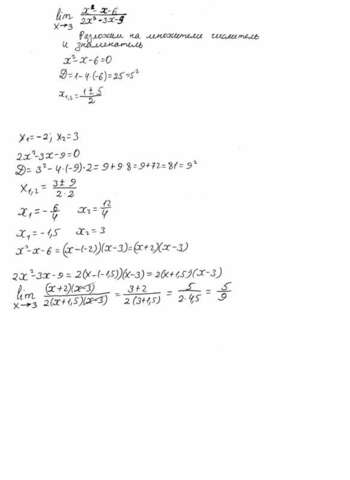 lim x→3 (x²-x-6)/(2x²+3x-9)
Разложим на множители числитель
и знаменатель
x²-x-6=0
D=1-4·(-6)=25=5²
x₁,₂= (1±5)/2
x₁=-2; x₂=3
2x²-3x-9=0
D=3²-4·(-9)·2=9+9·8=9+72=81=9²
x₁,₂= (3±9)/(2·2)
x₁=-6/4 x₂=12/4
x₁=-1,5 x₂=3
x²-x-6=(x-(-2))(x-3)=(x+2)(x-3)
2x²-3x-9=2(x-(-1,5))(x-3)=2(x+1,5)(x-3)
lim x→3 ((x+2)(x-3))/(2(x+1,5)(x-3)) = (3+2)/(2(3+1,5)) = 5/(2·4,5) = 5/9